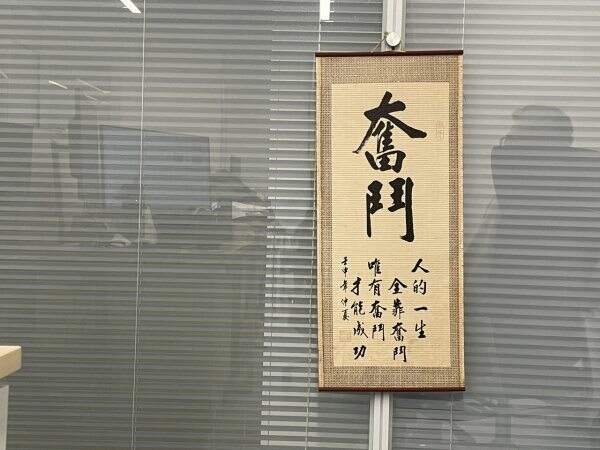 奮鬥
人的一生
全靠奮鬥
唯有奮鬥
才能成功
壬申年仲夏